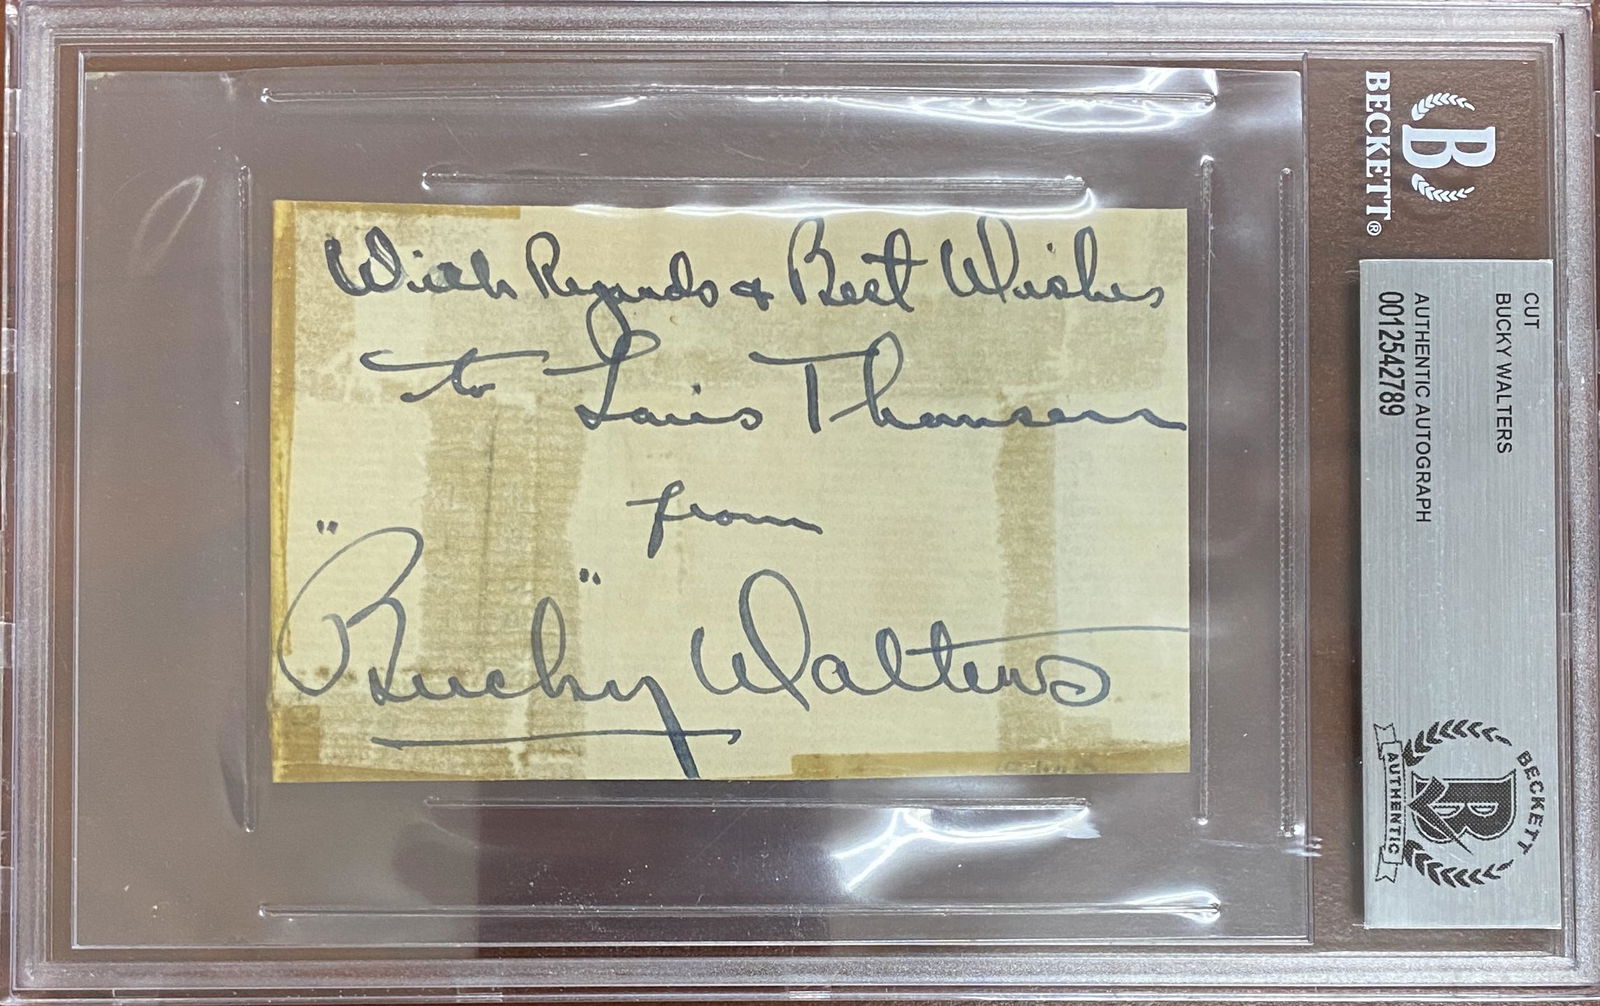 With Regards & Best Wishes
to Louis Thomsen
from
"Bucky" Walters
BECKETT®
CUT
BUCKY WALTERS
AUTHENTIC AUTOGRAPH
0012542789
BECKETT
AUTHENTIC